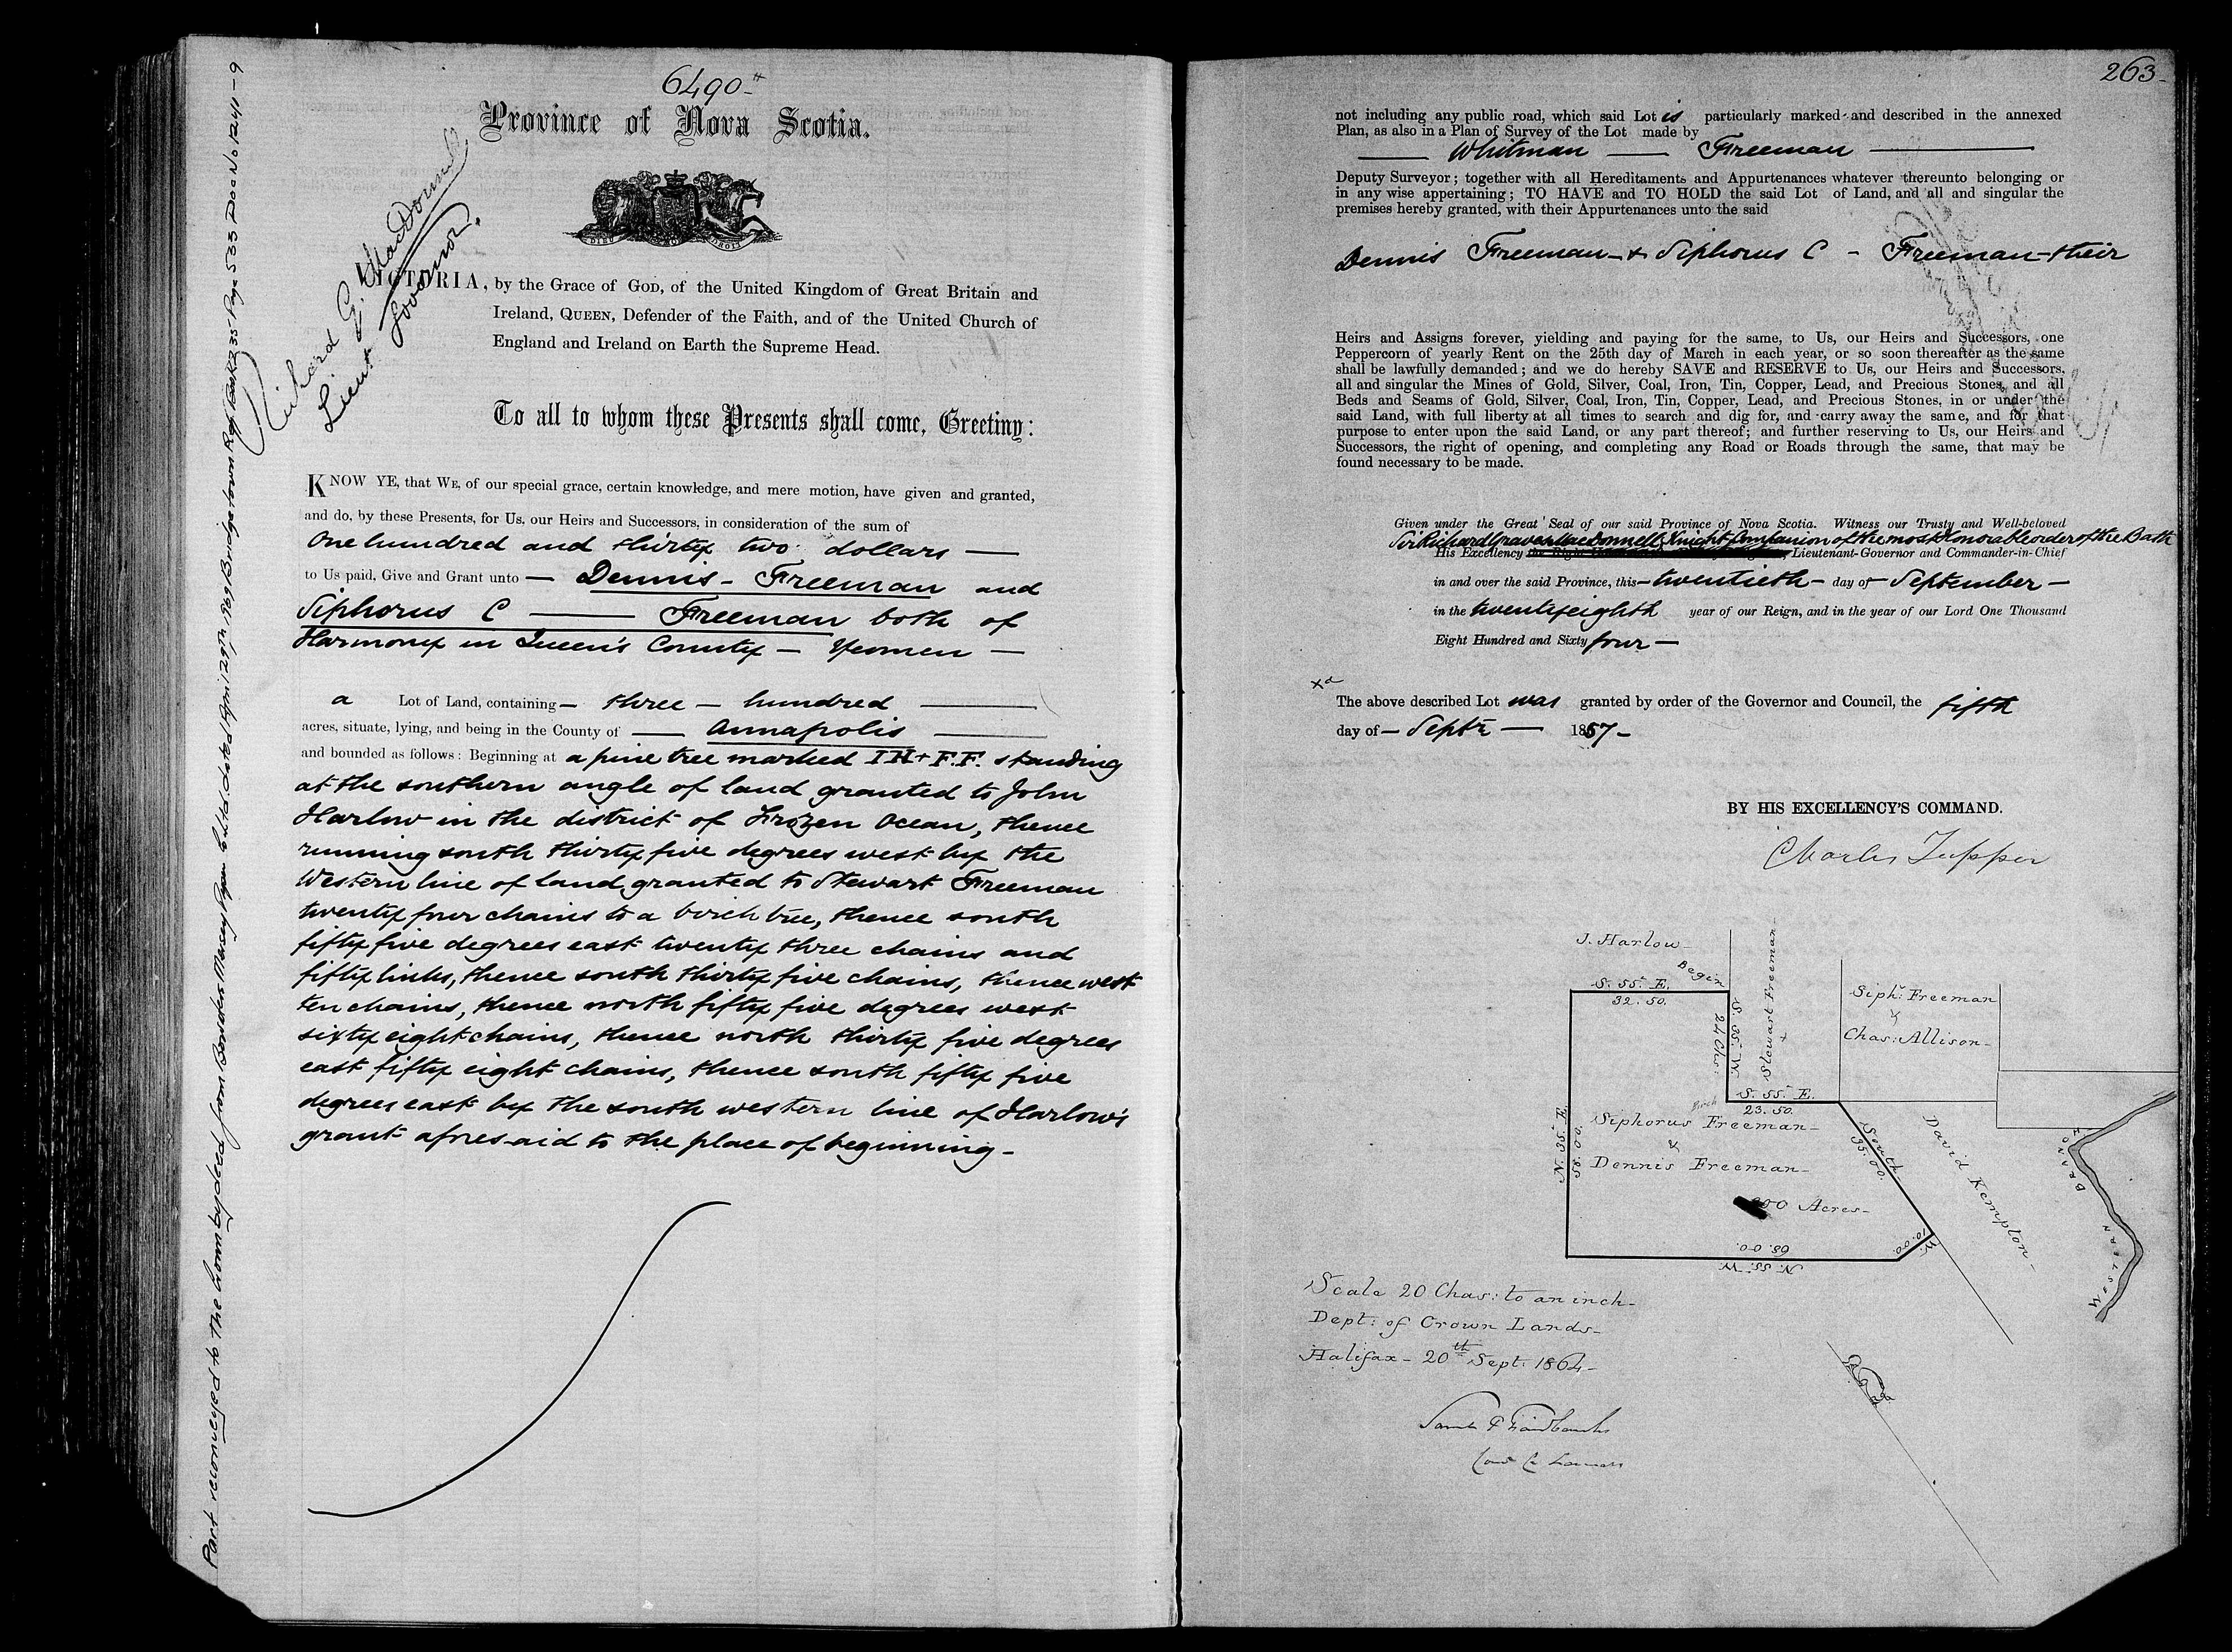 6490
Province of Nova Scotia.
Richard G. MacDonnell
Lieut. Governor.
DIEU ET MON DROIT
VICTORIA, by the Grace of GOD, of the United Kingdom of Great Britain and
Ireland, QUEEN, Defender of the Faith, and of the United Church of
England and Ireland on Earth the Supreme Head.
To all to whom these Presents shall come, Greeting:
KNOW YE, that WE, of our special grace, certain knowledge, and mere motion, have given and granted,
and do, by these Presents, for Us, our Heirs and Successors, in consideration of the sum of
One hundred and thirty two dollars —
to Us paid, Give and Grant unto — Dennis - Freeman and
Siphorus C — Freeman both of
Harmony in Queen's County — Yeomen —
a Lot of Land, containing — three — hundred —
acres, situate, lying, and being in the County of — Annapolis —
and bounded as follows: Beginning at a pine tree marked I H + F.F. standing
at the southern angle of land granted to John
Harlow in the district of Frozen Ocean, thence
running south thirty five degrees west by the
Western line of land granted to Stewart Freeman
twenty four chains to a birch tree, thence south
fifty five degrees east twenty three chains and
fifty links, thence south thirty five chains, thence west
ten chains, thence north fifty five degrees west
sixty eight chains, thence north thirty five degrees
east fifty eight chains, thence south fifty five
degrees east by the south western line of Harlow's
grant aforesaid to the place of beginning -
Part reconveyed to the Crown by deed from Bowaters Mersey Paper Co. Ltd. dated April 29th, 1969, Bridgetown Reg. Book 235 Page 533 Doc No 1241-9
263-
not including any public road, which said Lot is particularly marked and described in the annexed
Plan, as also in a Plan of Survey of the Lot made by
— Whitman — Freeman —
Deputy Surveyor; together with all Hereditaments and Appurtenances whatever thereunto belonging or
in any wise appertaining; TO HAVE and TO HOLD the said Lot of Land, and all and singular the
premises hereby granted, with their Appurtenances unto the said
Dennis Freeman - & Siphorus C - Freeman - their
Heirs and Assigns forever, yielding and paying for the same, to Us, our Heirs and Successors, one
Peppercorn of yearly Rent on the 25th day of March in each year, or so soon thereafter as the same
shall be lawfully demanded; and we do hereby SAVE and RESERVE to Us, our Heirs and Successors,
all and singular the Mines of Gold, Silver, Coal, Iron, Tin, Copper, Lead, and Precious Stones, and all
Beds and Seams of Gold, Silver, Coal, Iron, Tin, Copper, Lead, and Precious Stones, in or under the
said Land, with full liberty at all times to search and dig for, and carry away the same, and for that
purpose to enter upon the said Land, or any part thereof; and further reserving to Us, our Heirs and
Successors, the right of opening, and completing any Road or Roads through the same, that may be
found necessary to be made.
Given under the Great Seal of our said Province of Nova Scotia. Witness our Trusty and Well-beloved
Sir Richard Graves MacDonnell, Knight Companion of the most Honorable order of the Bath
His Excellency Lieutenant-Governor and Commander-in-Chief
in and over the said Province, this — twentieth — day of — September —
in the twenty eighth year of our Reign, and in the year of our Lord One Thousand
Eight Hundred and Sixty four —
The above described Lot was granted by order of the Governor and Council, the fifth
day of — Septr — 1857 -
BY HIS EXCELLENCY'S COMMAND.
Charles Tupper
J. Harlow
Begin
S. 55° E.
32.50.
S. 35° W.
24 Chs:
Stewart Freeman
Siphs. Freeman
&
Chas: Allison
S. 55° E.
23.50.
Birch
Siphorus Freeman
&
Dennis Freeman
300 Acres
N. 35° E.
58.00.
South
35.00.
David Kempton
W.
10.00.
68.00.
N. 55° W.
WESTERN BRANCH
Scale 20 Chas: to an inch
Dept: of Crown Lands
Halifax - 20th Sept: 1864
Saml P Fairbanks
Com Cr Lands